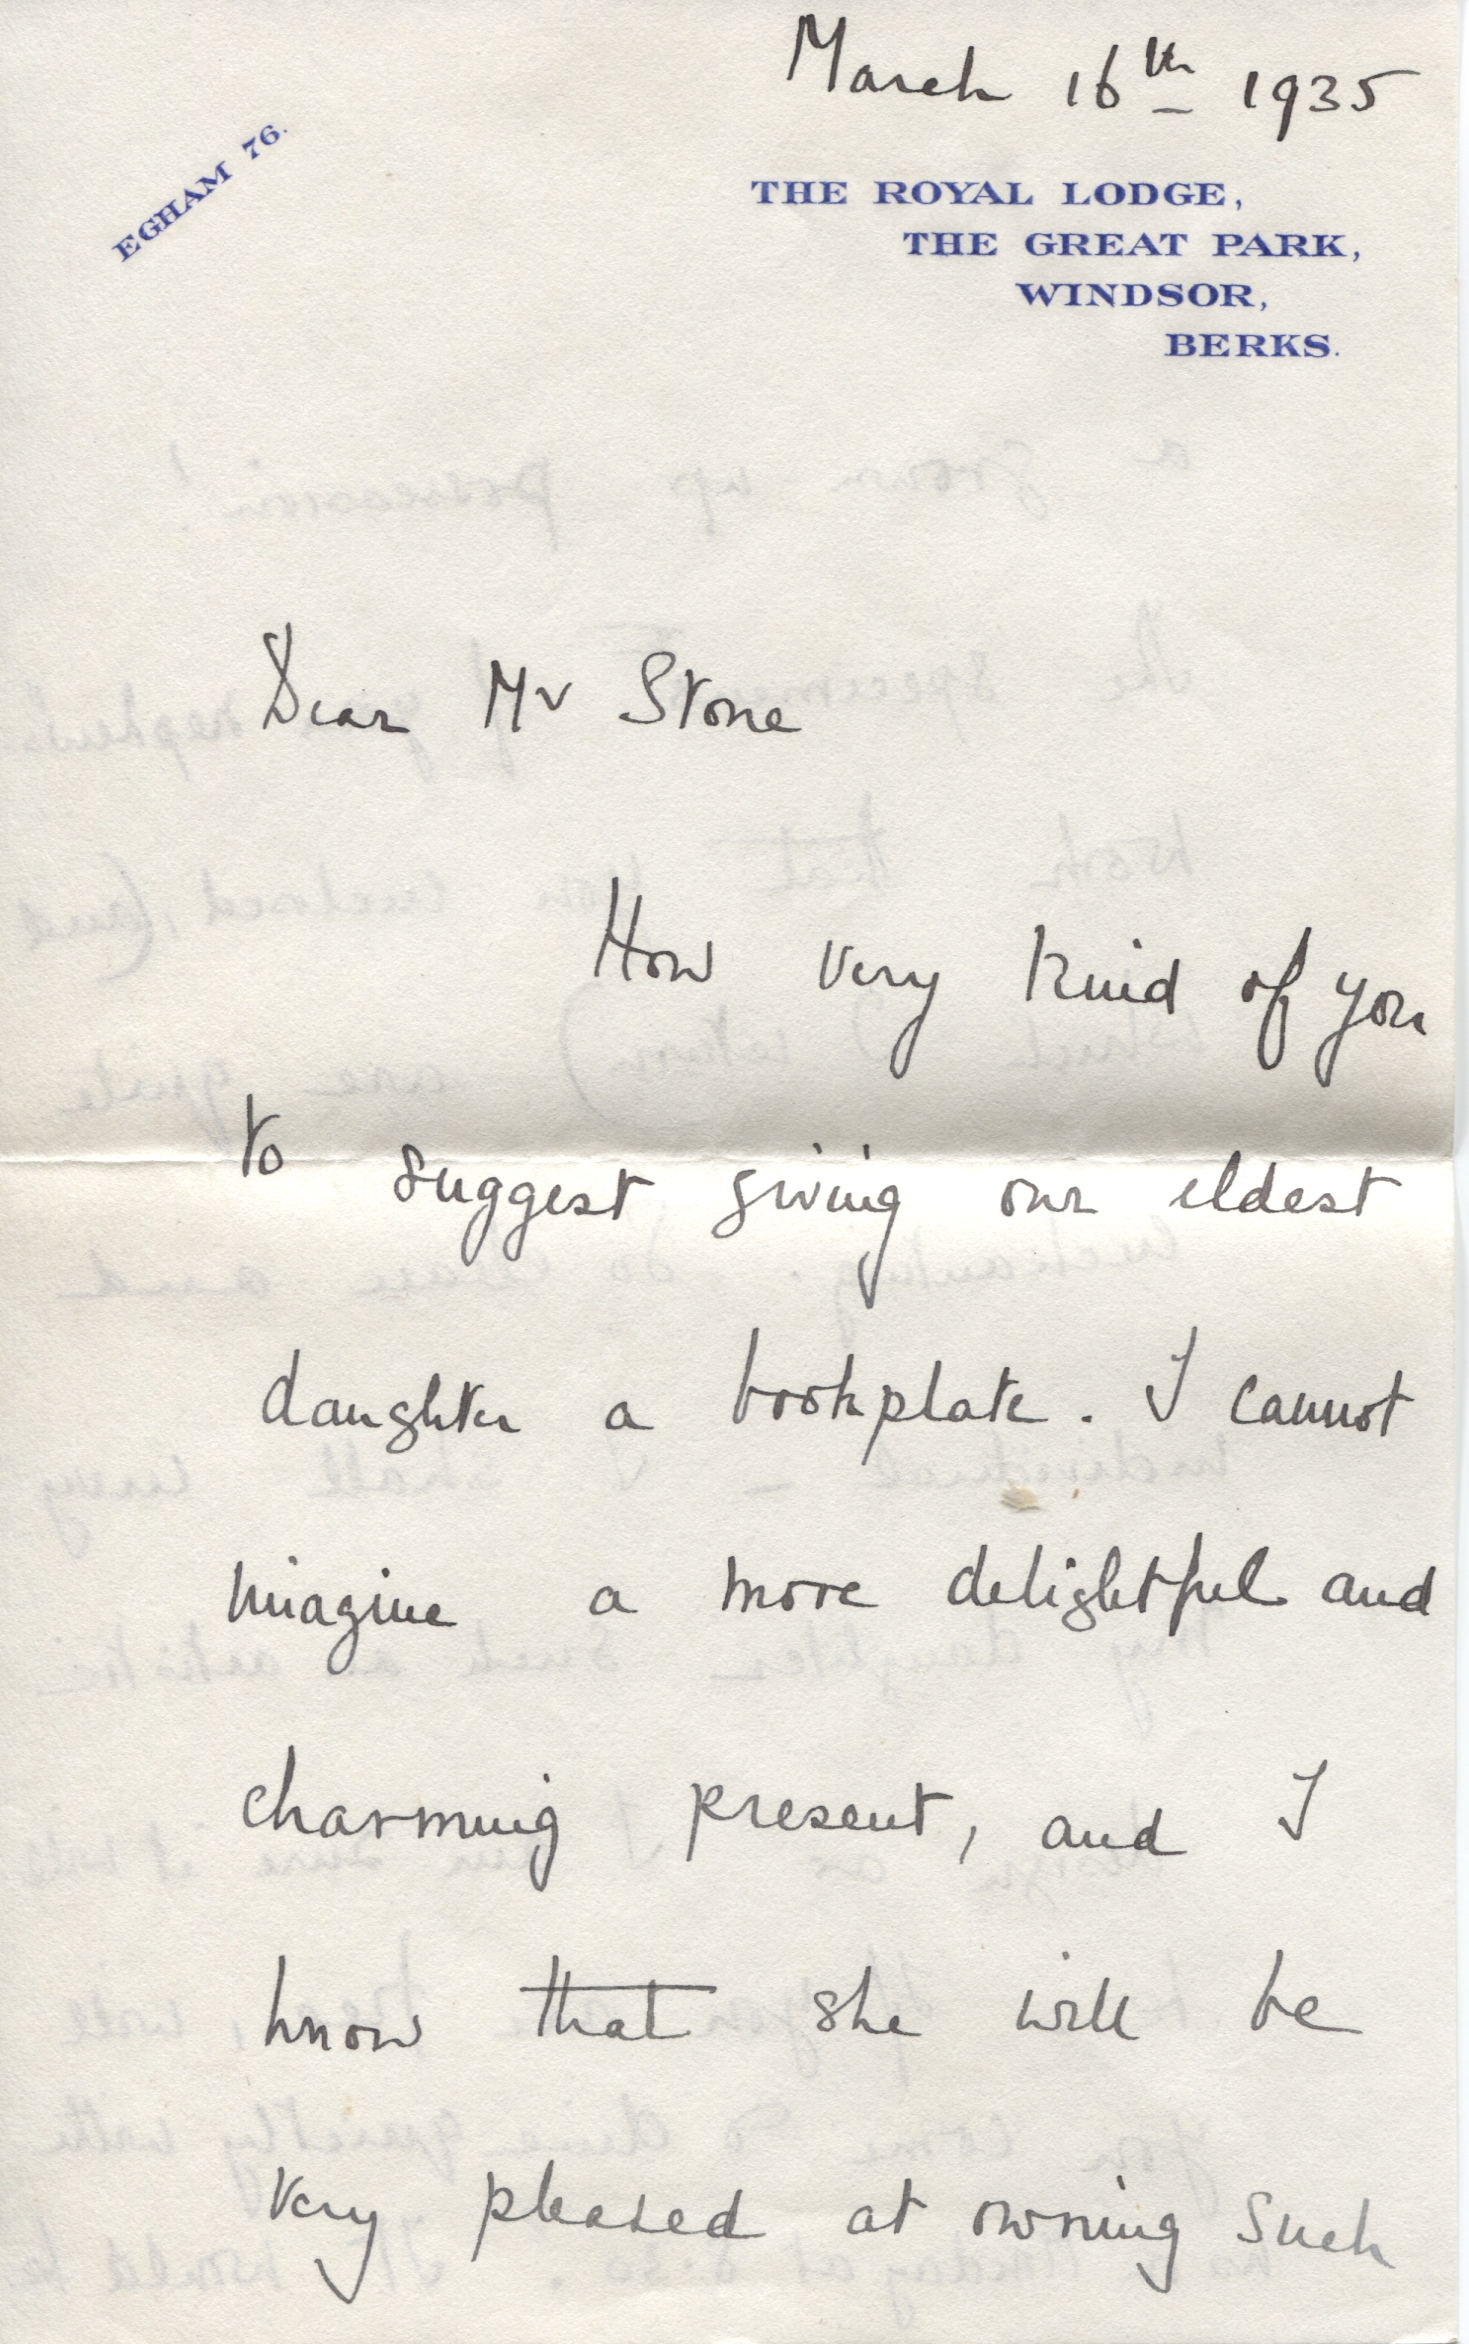 March 16th 1935
EGHAM 76.
THE ROYAL LODGE,
THE GREAT PARK,
WINDSOR,
BERKS.
Dear Mr Stone
How very kind of you
to suggest giving our eldest
daughter a bookplate. I cannot
imagine a more delightful and
charming present, and I
know that she will be
very pleased at owning such